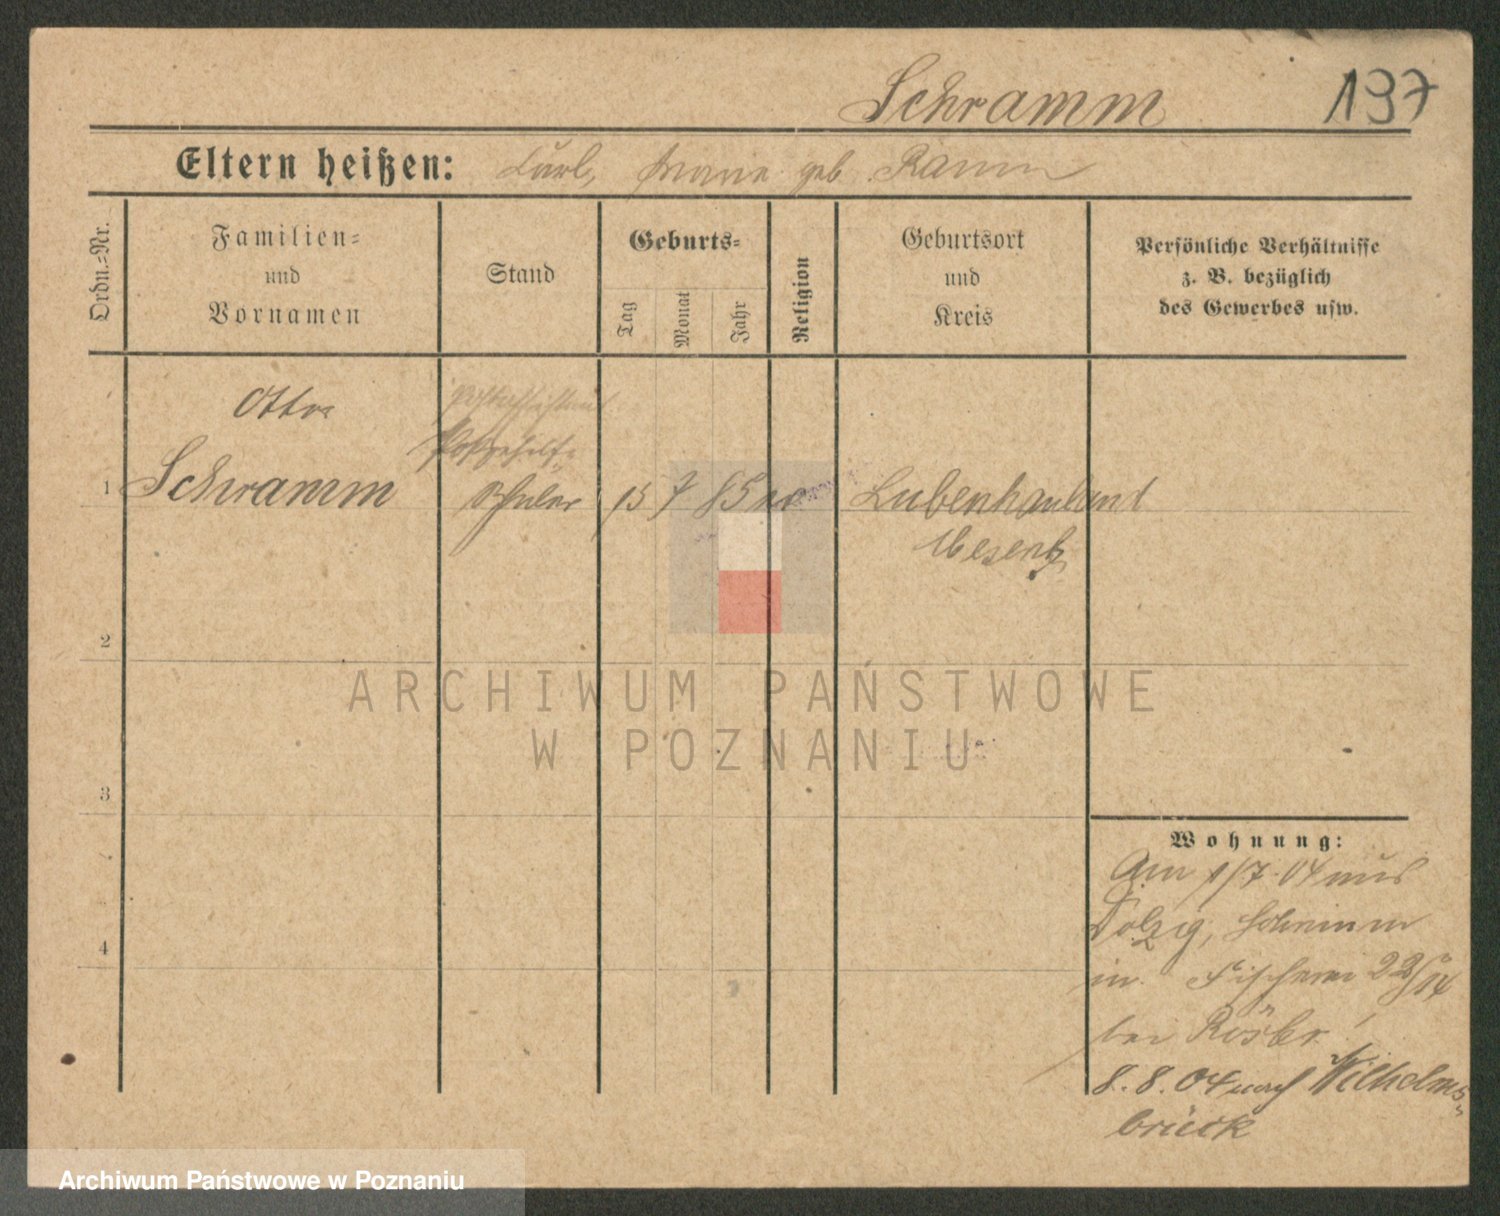 Schramm 137
Eltern heißen: Carl, Marie geb. Ramm
Ordn.=Nr.
Familien=
und
Vornamen
Stand
Geburts=
Tag
Monat
Jahr
Religion
Geburtsort
und
Kreis
Persönliche Verhältnisse
z. B. bezüglich
des Gewerbes usw.
Otto
Postassistent
Postgehilfe
1 Schramm Schüler 15 7 85 Lubenhauland
Meseritz
2
3
4
Wohnung:
Am 1/7. 04 aus
Dolzig, Schrimm
in Fischerei
bei
8. 8. 04 nach Wilhelms=
brück
ARCHIWUM PAŃSTWOWE
W POZNANIU
Archiwum Państwowe w Poznaniu